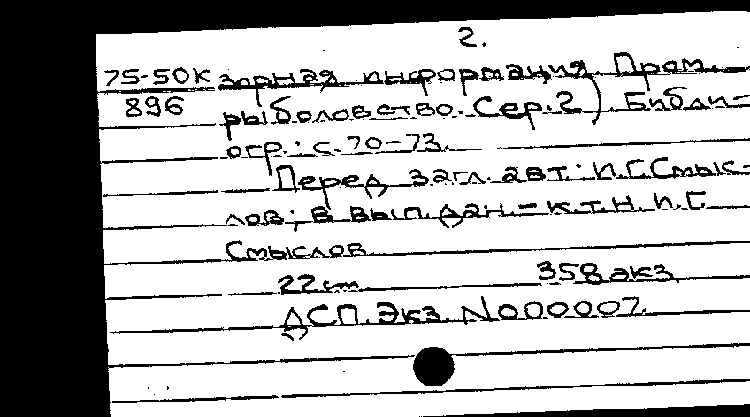 2.
75-50К зорная информация. Пром.
896 рыболовство. Сер.2). Библи-
огр.: с. 70-73.
Перед загл. авт.: И.Г.Смыс-
лов; В вып. дан. - к.т.н. И.Г.
Смыслов
22 см. 358 экз
ДСП. Экз. №000007.